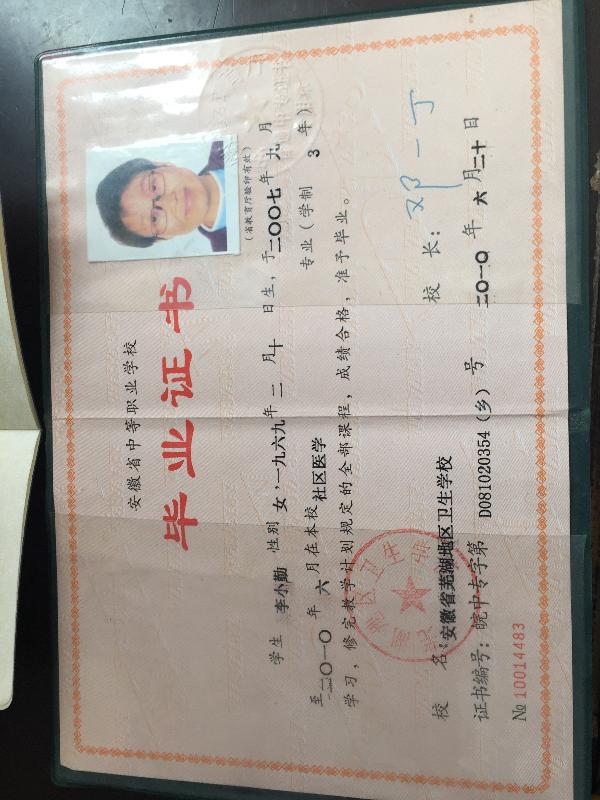 安徽省中等职业学校
毕业证书
(省教育厅验印有效)
学生 李小勤 性别 女,一九六九年 二 月 十 日生,于 二〇〇七 年 九 月
至二〇一〇 年 六 月在本校 社区医学 专业(学制 3 年)
学习,修完教学计划规定的全部课程,成绩合格,准予毕业。
校 名:安徽省芜湖地区卫生学校
校 长:邓一丁
证书编号:皖中专字第 D081020354(乡)号
二〇一〇 年 六 月二十日
№ 10014483